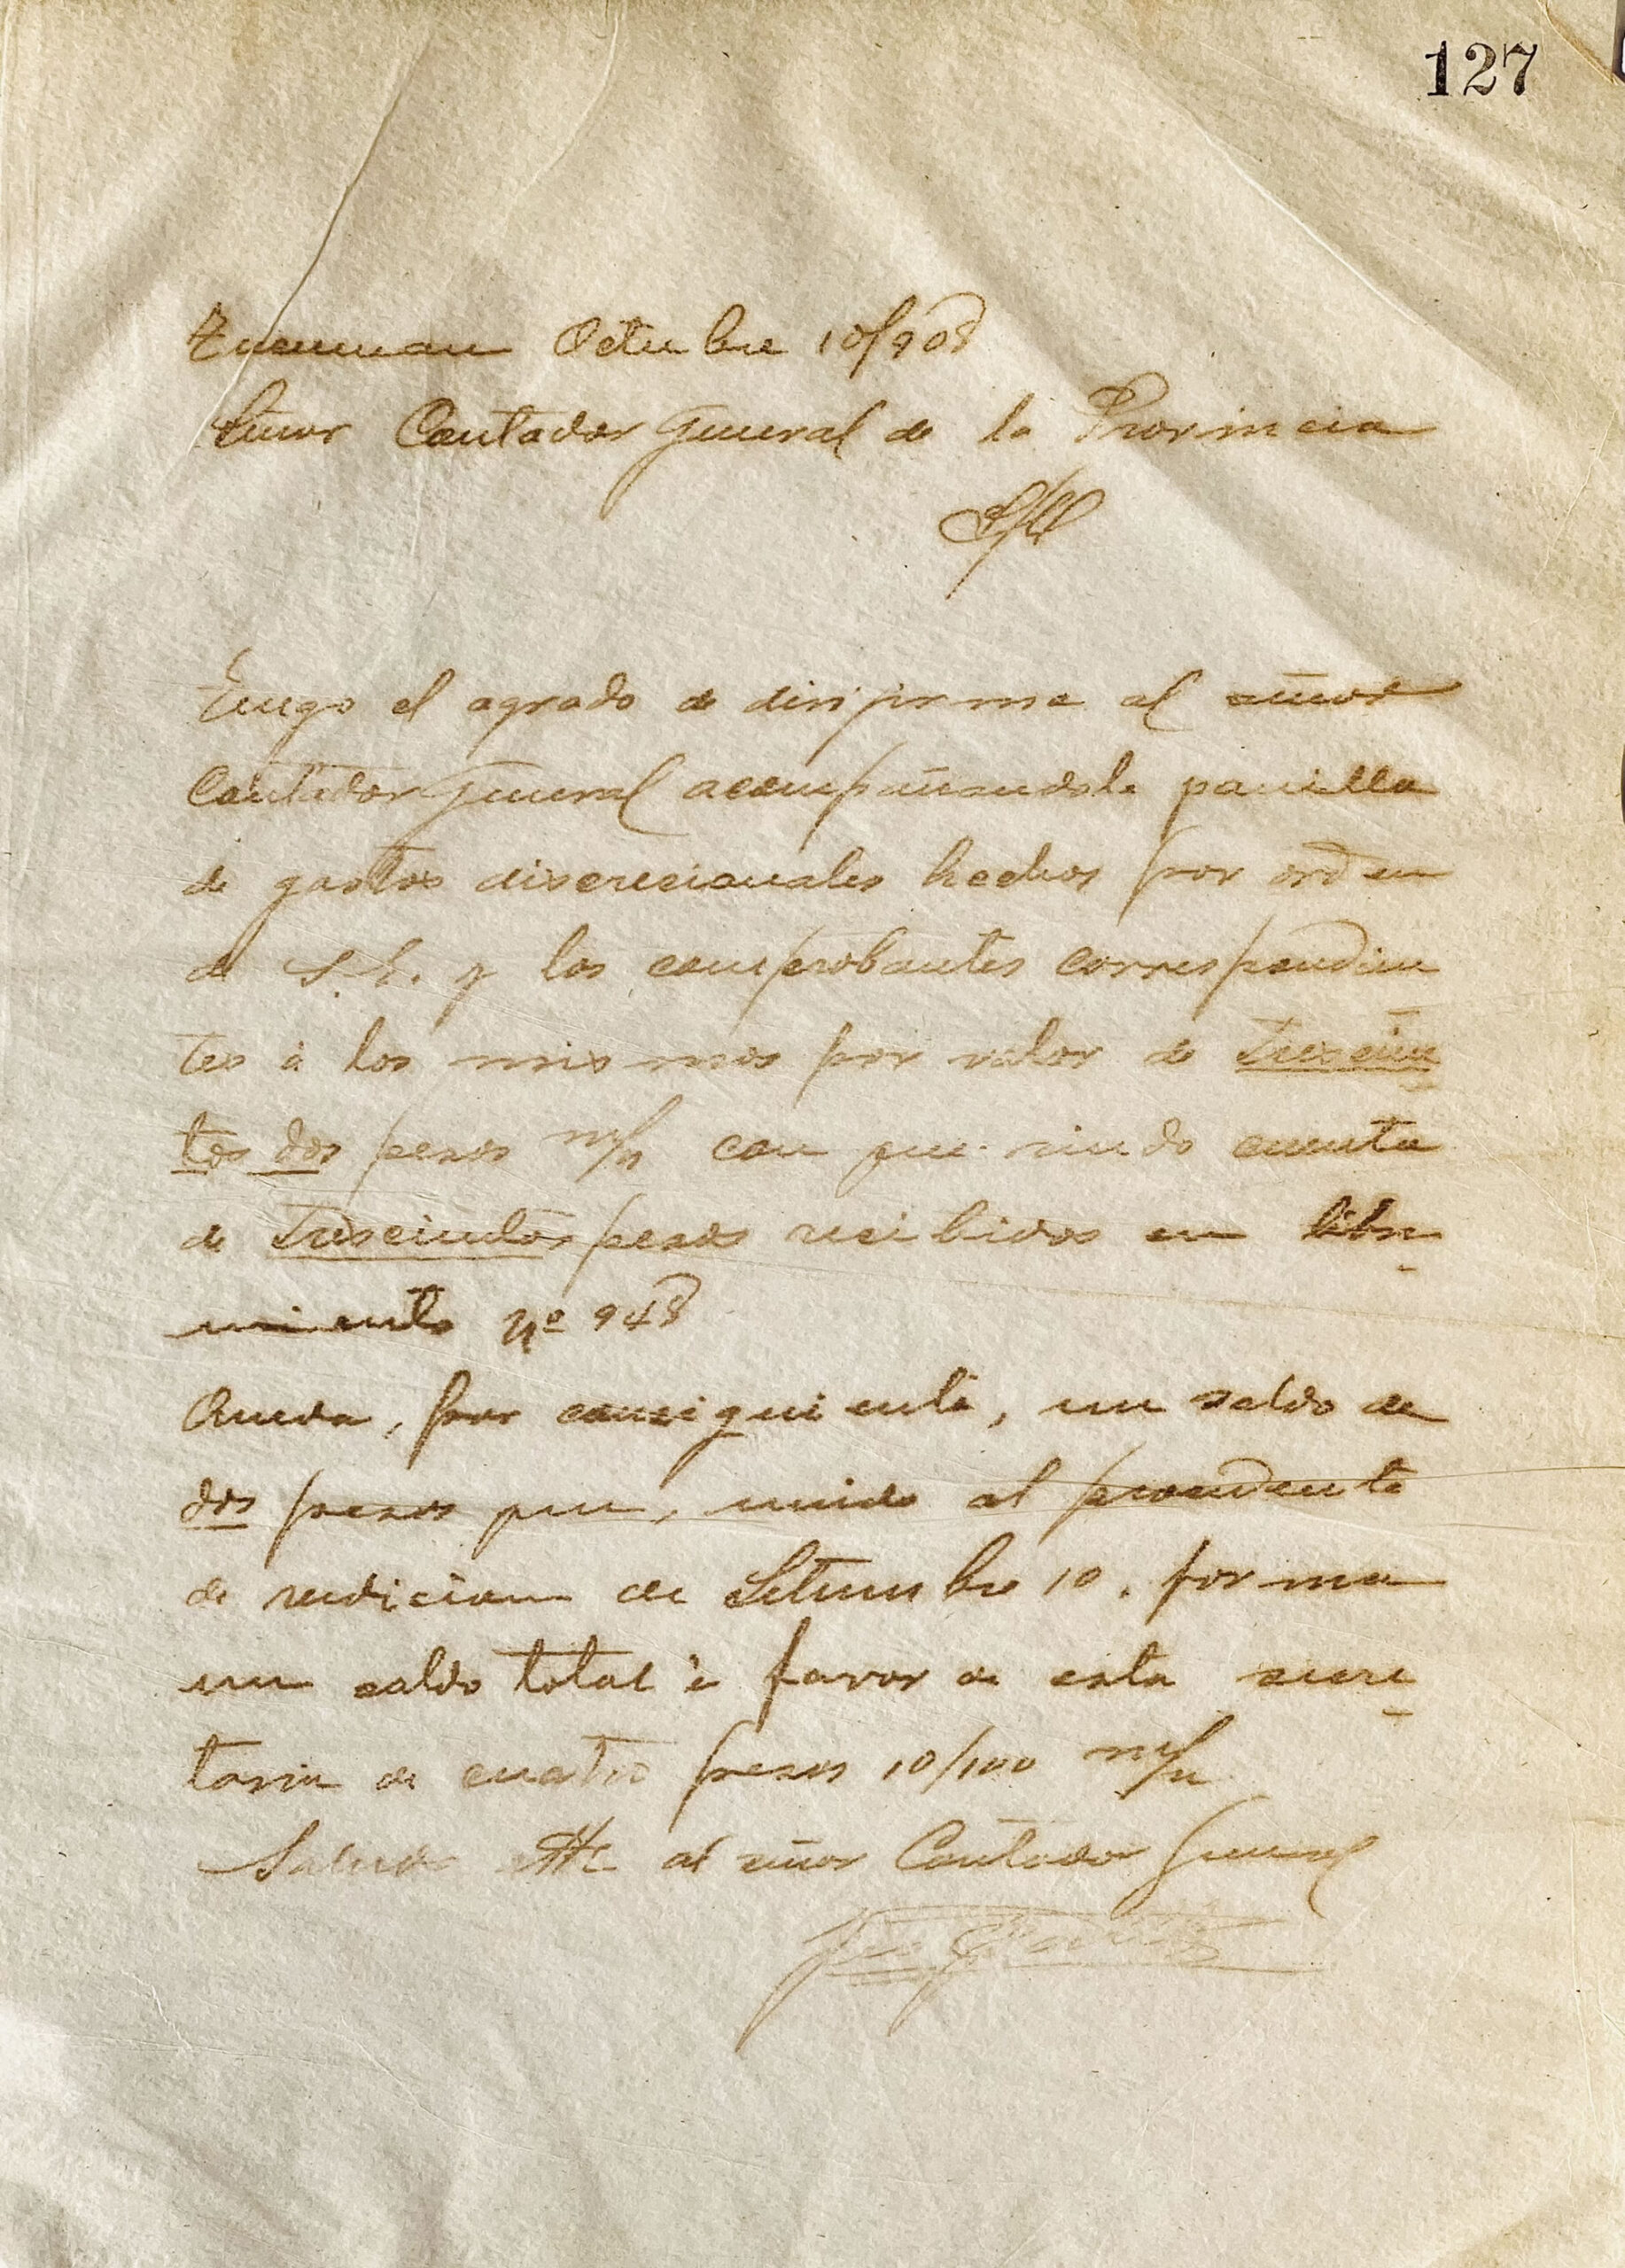 127
Tucuman Octubre 10/908
Señor Contador General de la Provincia
S/D
Tengo el agrado de dirijirme al señor
Contador General acompañandole panilla
de gastos discrecionales hechos por orden
de S.E. y los comprobantes correspondien
tes á los mismos por valor de Trescien
tos dos pesos m/n con que rindo cuenta
de Trescientos pesos recibidos en libra
miento Nº 948
Queda, por consiguiente, un saldo de
dos pesos que, unido al procedente
de rendicion de Setiembre 10, forma
un saldo total á favor de esta secre
taria de cuatro pesos 10/100 m/n
Saludo atte al señor Contador General